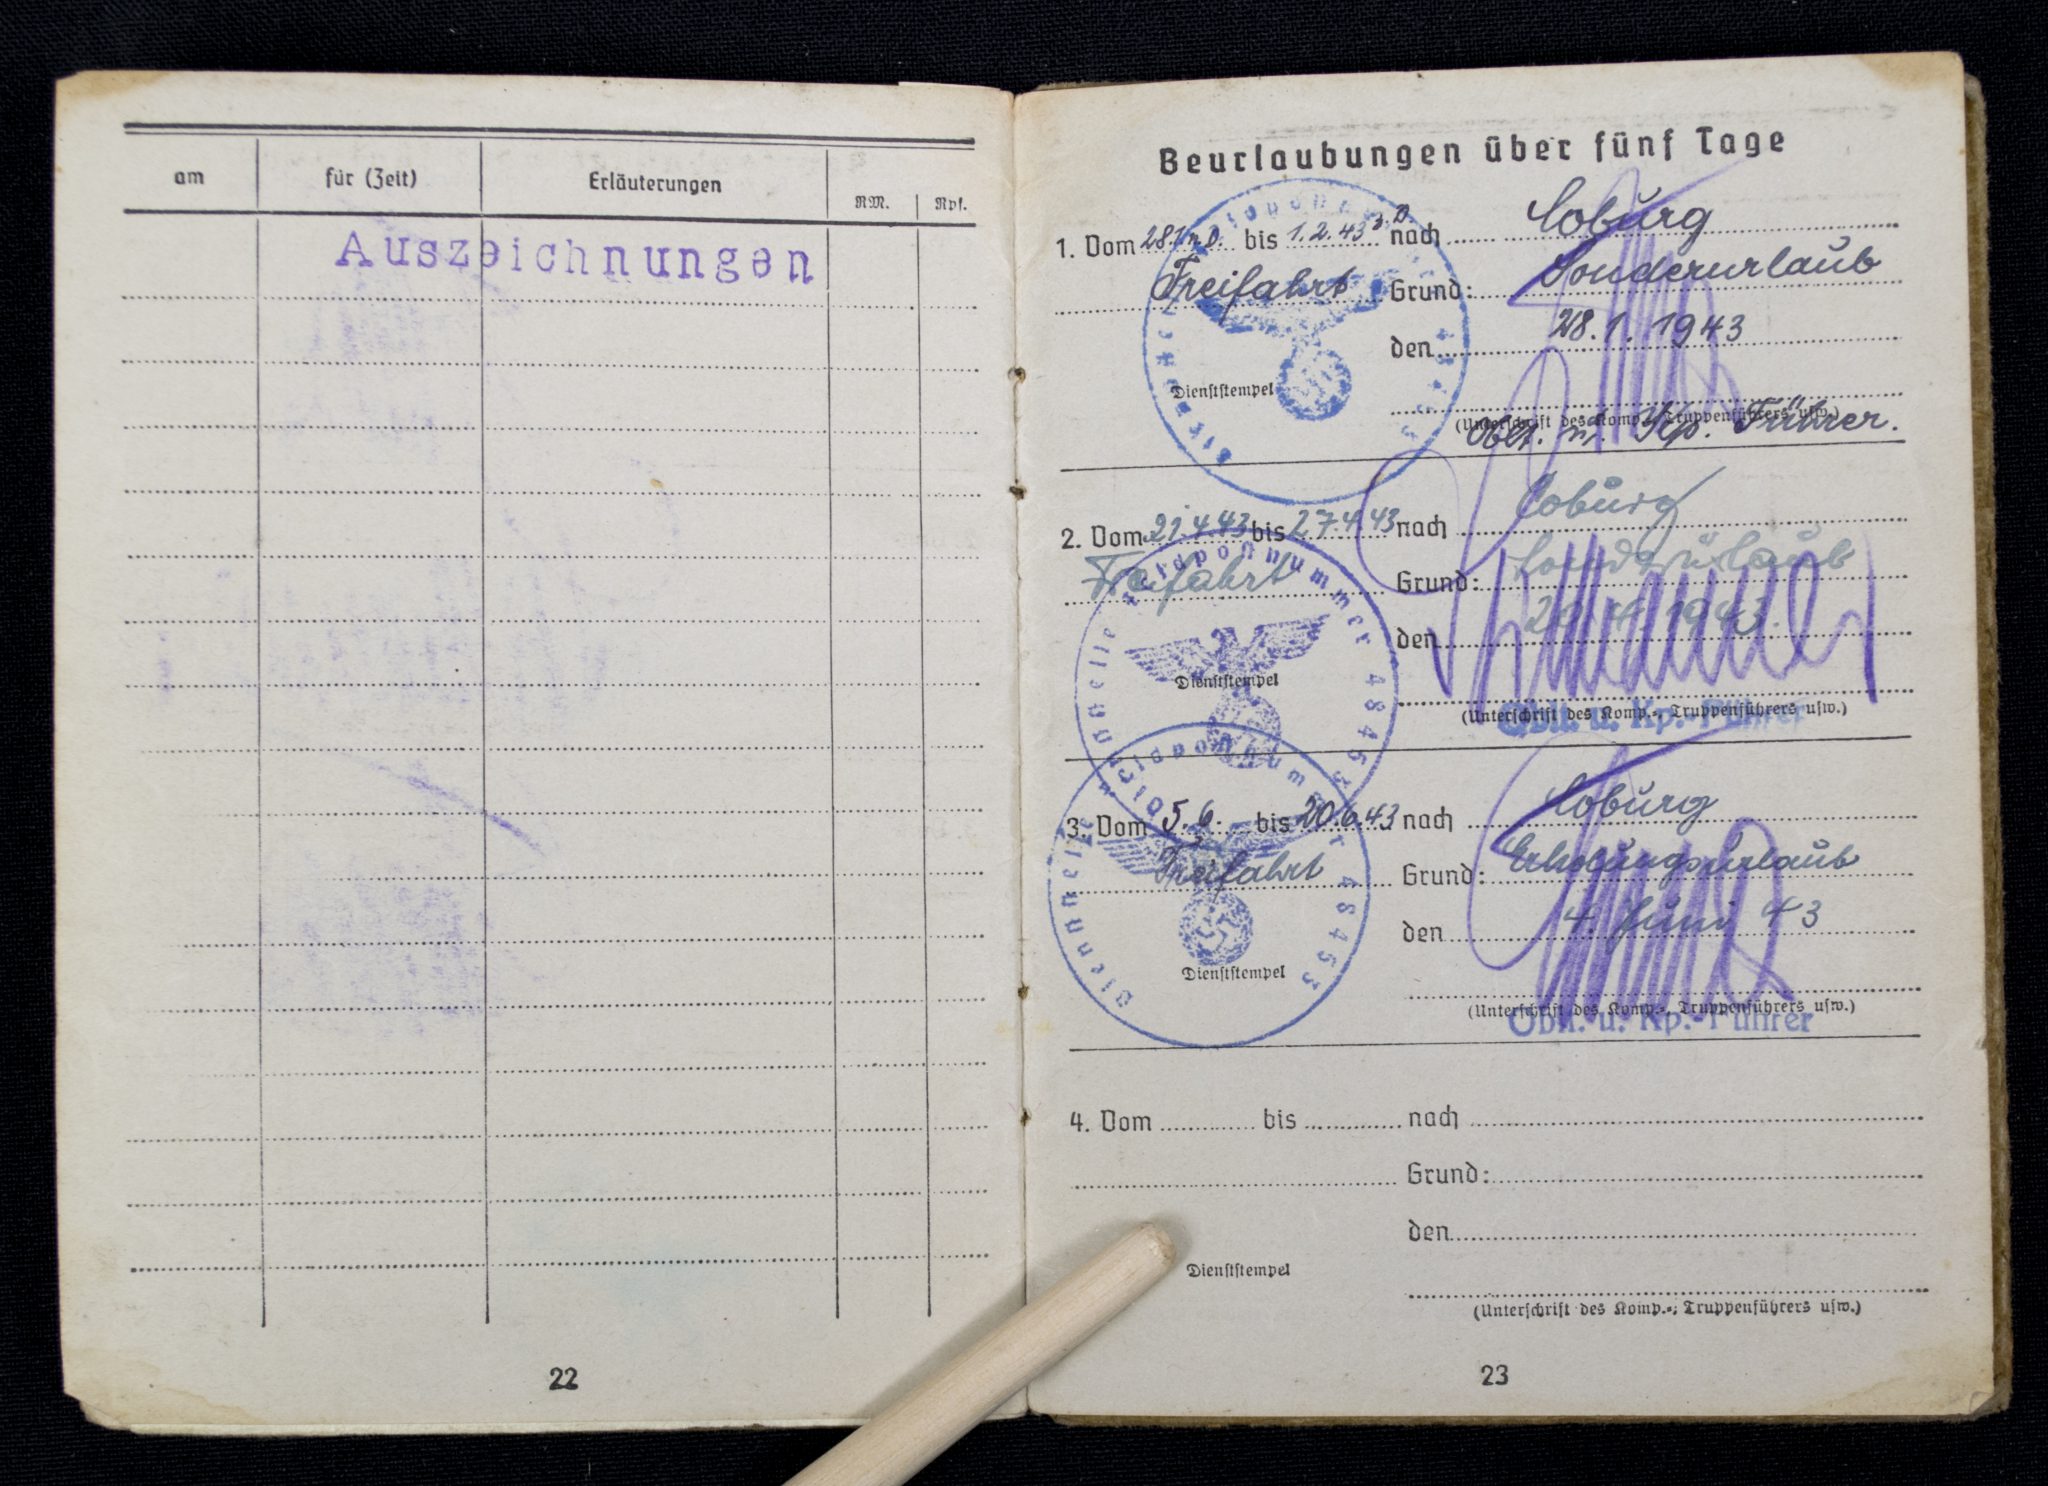 am für (Zeit) Erläuterungen RM. Rpf.
Auszeichnungen
22
Beurlaubungen über fünf Tage
1. Vom 28.1. n. D. bis 1.2.43 z. D. nach Coburg
Freifahrt Grund: Sonderurlaub
den 28.1.1943
Dienststempel
(Unterschrift des Komp.-, Truppenführers usw.)
Oblt. u. Kp. Führer.
2. Vom 21.4.43 bis 27.4.43 nach Coburg
Freifahrt Grund: Sonderurlaub
den 20.4.1943.
Dienststempel
(Unterschrift des Komp.-, Truppenführers usw.)
Oblt. u. Kp.-Führer
Dienststelle Feldpostnummer 48453
3. Vom 5.6. bis 20.6.43 nach Coburg
Freifahrt Grund: Erholungsurlaub
den 4. Juni 43
Dienststempel
(Unterschrift des Komp.-, Truppenführers usw.)
Oblt. u. Kp.-Führer
Dienststelle Feldpostnummer 48453
4. Vom bis nach
Grund:
den
Dienststempel
(Unterschrift des Komp.-, Truppenführers usw.)
23